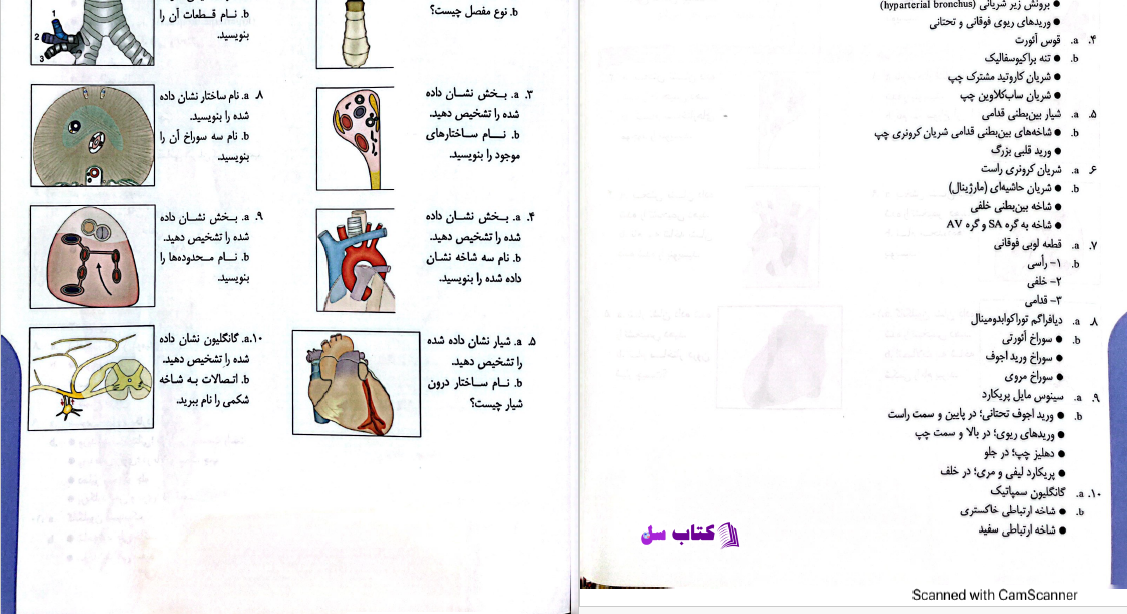 b. نوع مفصل چیست؟
۳. a. بـخش نشـان داده
شده را تشخیص دهید.
b. نـــام ساختارهای
موجود را بنویسید.
۴. a. بـخش نشـان داده
شده را تشخیص دهید.
b. نام سه شاخه نشان
داده شده را بنویسید.
۵. a. شیار نشان داده شده
را تشخیص دهید.
b. نـام سـاختار درون
شیار چیست؟
b. نـام قـطعات آن را
بنویسید.
1
2
3
۸. a. نام ساختار نشان داده
شده را بنویسید.
b. نام سه سوراخ آن را
بنویسید.
۹. a. بـخش نشـان داده
شده را تشخیص دهید.
b. نـام مـحدوده‌ها را
بنویسید.
۱۰.a. گانگلیون نشان داده
شده را تشخیص دهید.
b. اتـصالات بـه شـاخه
شکمی را نام ببرید.
● برونش زیر شریانی (hyparterial bronchus)
● وریدهای ریوی فوقانی و تحتانی
۴. a. قوس آئورت
b. ● تنه براکیوسفالیک
● شریان کاروتید مشترک چپ
● شریان ساب‌کلاوین چپ
۵. a. شیار بین‌بطنی قدامی
b. ● شاخه‌های بین‌بطنی قدامی شریان کرونری چپ
● ورید قلبی بزرگ
۶. a. شریان کرونری راست
b. ● شریان حاشیه‌ای (مارژینال)
● شاخه بین‌بطنی خلفی
● شاخه به گره SA و گره AV
۷. a. قطعه لوبی فوقانی
b. ۱- رأسی
۲- خلفی
۳- قدامی
۸. a. دیافراگم توراکوابدومینال
b. ● سوراخ آئورتی
● سوراخ ورید اجوف
● سوراخ مروی
۹. a. سینوس مایل پریکارد
b. ● ورید اجوف تحتانی؛ در پایین و سمت راست
● وریدهای ریوی؛ در بالا و سمت چپ
● دهلیز چپ؛ در جلو
● پریکارد لیفی و مری؛ در خلف
۱۰.a. گانگلیون سمپاتیک
b. ● شاخه ارتباطی خاکستری
● شاخه ارتباطی سفید
کتاب سل
Scanned with CamScanner